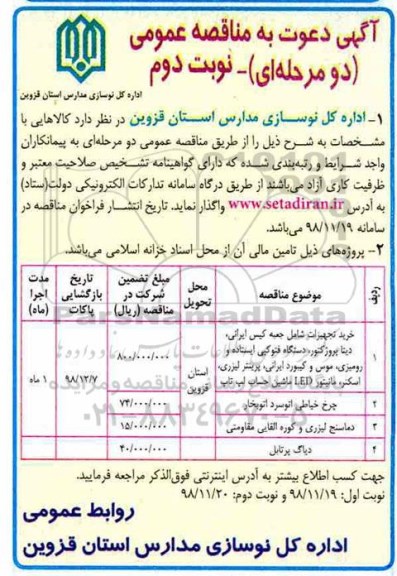 آگهی دعوت به مناقصه عمومی
(دو مرحله‌ای)- نوبت دوم
اداره کل نوسازی مدارس استان قزوین
۱- اداره کل نوسازی مدارس استان قزوین در نظر دارد کالاهایی با
مشخصات به شرح ذیل را از طریق مناقصه عمومی دو مرحله‌ای به پیمانکاران
واجد شرایط و رتبه‌بندی شده که دارای گواهینامه تشخیص صلاحیت معتبر و
ظرفیت کاری آزاد می‌باشند از طریق درگاه سامانه تدارکات الکترونیکی دولت(ستاد)
به آدرس www.setadiran.ir واگذار نماید. تاریخ انتشار فراخوان مناقصه در
سامانه ۹۸/۱۱/۱۹ می‌باشد.
۲- پروژه‌های ذیل تامین مالی آن از محل اسناد خزانه اسلامی می‌باشد.
ردیف
موضوع مناقصه
محل تحویل
مبلغ تضمین شرکت در مناقصه (ریال)
تاریخ بازگشایی پاکات
مدت اجرا (ماه)
۱
خرید تجهیزات شامل جعبه کیس ایرانی،
دیتا پروژکتور، دستگاه فتوکپی ایستاده و
رومیزی، موس و کیبورد ایرانی، پرینتر لیزری،
اسکنر، مانیتور LED ماشین حساب لپ تاپ
۸۰۰/۰۰۰/۰۰۰
استان قزوین
۹۸/۱۲/۷
۱ ماه
۲
چرخ خیاطی اتوسرد اتوبخار
۷۴/۰۰۰/۰۰۰
۳
دماسنج لیزری و کوره القایی مقاومتی
۱۵/۰۰۰/۰۰۰
۴
دیاگ پرتابل
۴۰/۰۰۰/۰۰۰
ParsNamadData
۰۲۱-۸۸۳۴۹۶۷۰-۵
جهت کسب اطلاع بیشتر به آدرس اینترنتی فوق‌الذکر مراجعه فرمایید.
نوبت اول: ۹۸/۱۱/۱۹ و نوبت دوم: ۹۸/۱۱/۲۰
روابط عمومی
اداره کل نوسازی مدارس استان قزوین